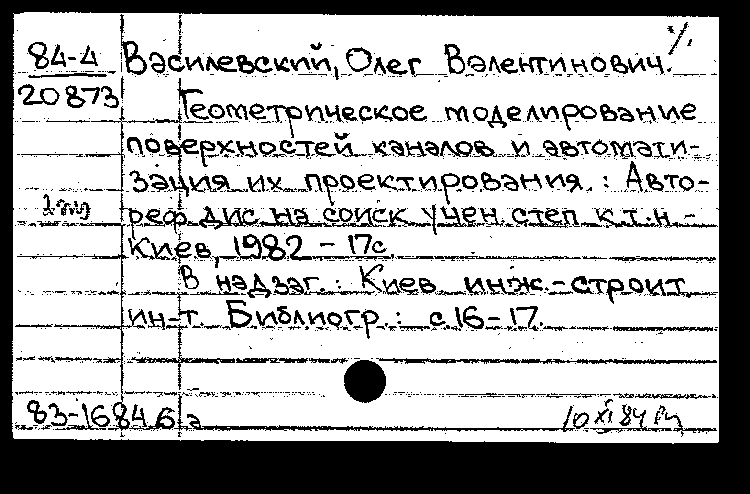 84-4 Василевский, Олег Валентинович.
20873 Геометрическое моделирование
поверхностей каналов и автомати-
зация их проектирования. : Авто-
реф дис на соиск учен. степ к.т.н -
Киев, 1982 - 17с.
В надзаг. : Киев инж.-строит
ин-т. Библиогр. : с 16-17.
83-16846 а 10 XI 84